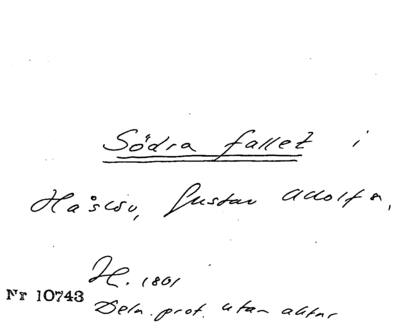 Södra fallet i
Håslöv, Gustav Adolf s,
H. 1801
Nr 10743
Deln. prot. utan aktnr